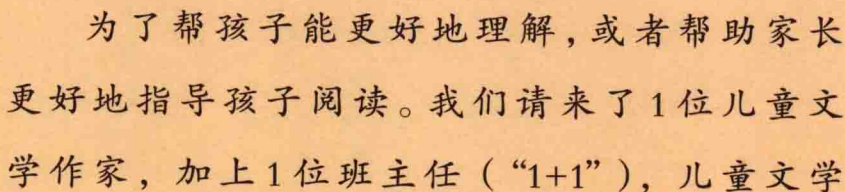 为了帮孩子能更好地理解,或者帮助家长
更好地指导孩子阅读。我们请来了1位儿童文
学作家，加上1位班主任（“1+1”），儿童文学